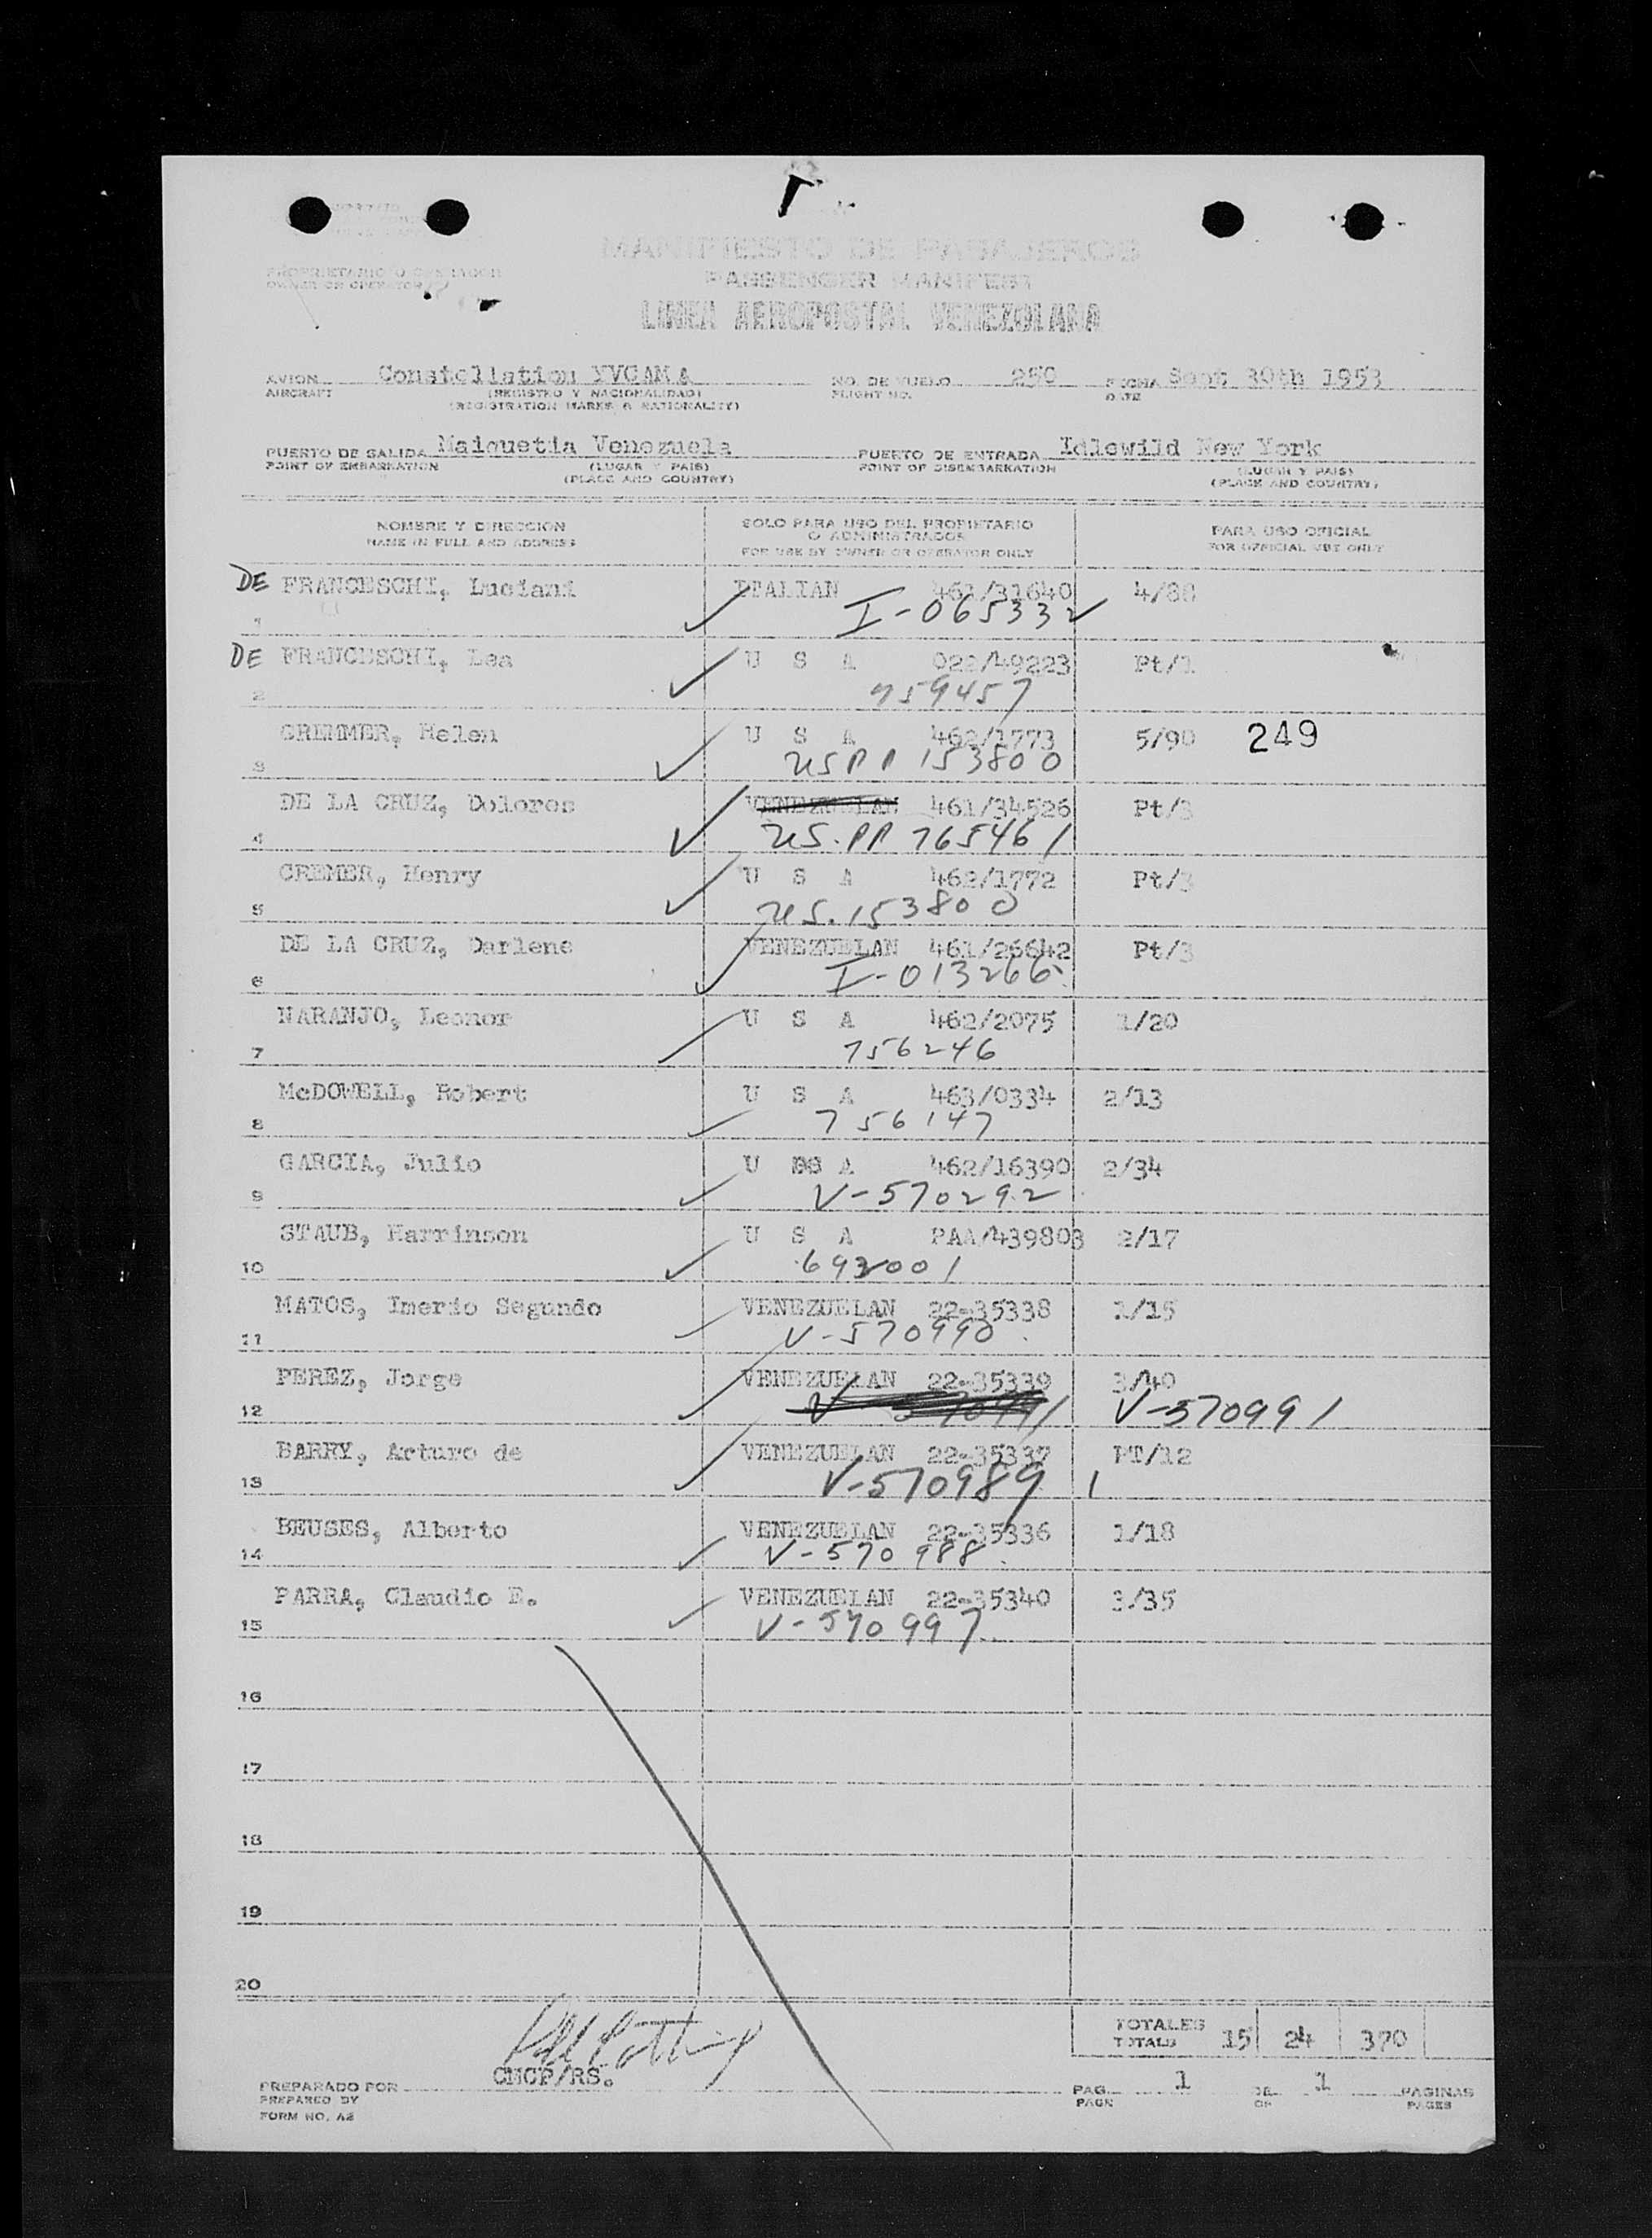 MANIFIESTO DE PASAJEROS
PASSENGER MANIFEST
PROPRIETARIO O OPERADOR
OWNER OR OPERATOR
LINEA AEROPOSTAL VENEZOLANA
AVION Constellation YVCAMA NO. DE VUELO 250 FECHA Sept 30th 1953
AIRCRAFT (REGISTRO Y NACIONALIDAD) FLIGHT NO. DATE
(REGISTRATION MARKS & NATIONALITY)
PUERTO DE SALIDA Maiquetia Venezuela PUERTO DE ENTRADA Idlewild New York
POINT OF EMBARKATION (LUGAR Y PAIS) POINT OF DISEMBARKATION (LUGAR Y PAIS)
(PLACE AND COUNTRY) (PLACE AND COUNTRY)
NOMBRE Y DIRECCION SOLO PARA USO DEL PROPIETARIO PARA USO OFICIAL
NAME IN FULL AND ADDRESS O ADMINISTRADOR FOR OFFICIAL USE ONLY
FOR USE BY OWNER OR OPERATOR ONLY
DE FRANCESCHI, Luciani ITALIAN 461/31640 4/88
1 I-065332
DE FRANCESCHI, Lea U S A 022/49223 Pt/1
2 759457
CREMMER, Helen U S A 462/1773 5/90 249
3 US PP 153800
DE LA CRUZ, Dolores VENEZUELAN 461/34526 Pt/3
4 US. PP 765461
CREMER, Henry U S A 462/1772 Pt/3
5 US. 153800
DE LA CRUZ, Darlene VENEZUELAN 461/26642 Pt/3
6 I-013266
NARANJO, Leonor U S A 462/2075 1/20
7 756246
McDOWELL, Robert U S A 463/0334 2/13
8 756147
GARCIA, Julio U S A 462/16390 2/34
9 V-570292
STAUB, Harrinson U S A PAA/439803 2/17
10 692001
MATOS, Imerio Segundo VENEZUELAN 22-35338 1/15
11 V-570990
PEREZ, Jorge VENEZUELAN 22-35339 3/40
12 V-570991 V-570991
BARRY, Arturo de VENEZUELAN 22-35337 PT/12
13 V-570989
BEUSES, Alberto VENEZUELAN 22-35336 1/18
14 V-570988
PARRA, Claudio E. VENEZUELAN 22-35340 3/35
15 V-570997
16
17
18
19
20
TOTALES
TOTALS 15 24 370
CMCP/RS.
PREPARADO POR PAG. 1 DE 1 PAGINAS
PREPARED BY PAGE OF PAGES
FORM NO. A2